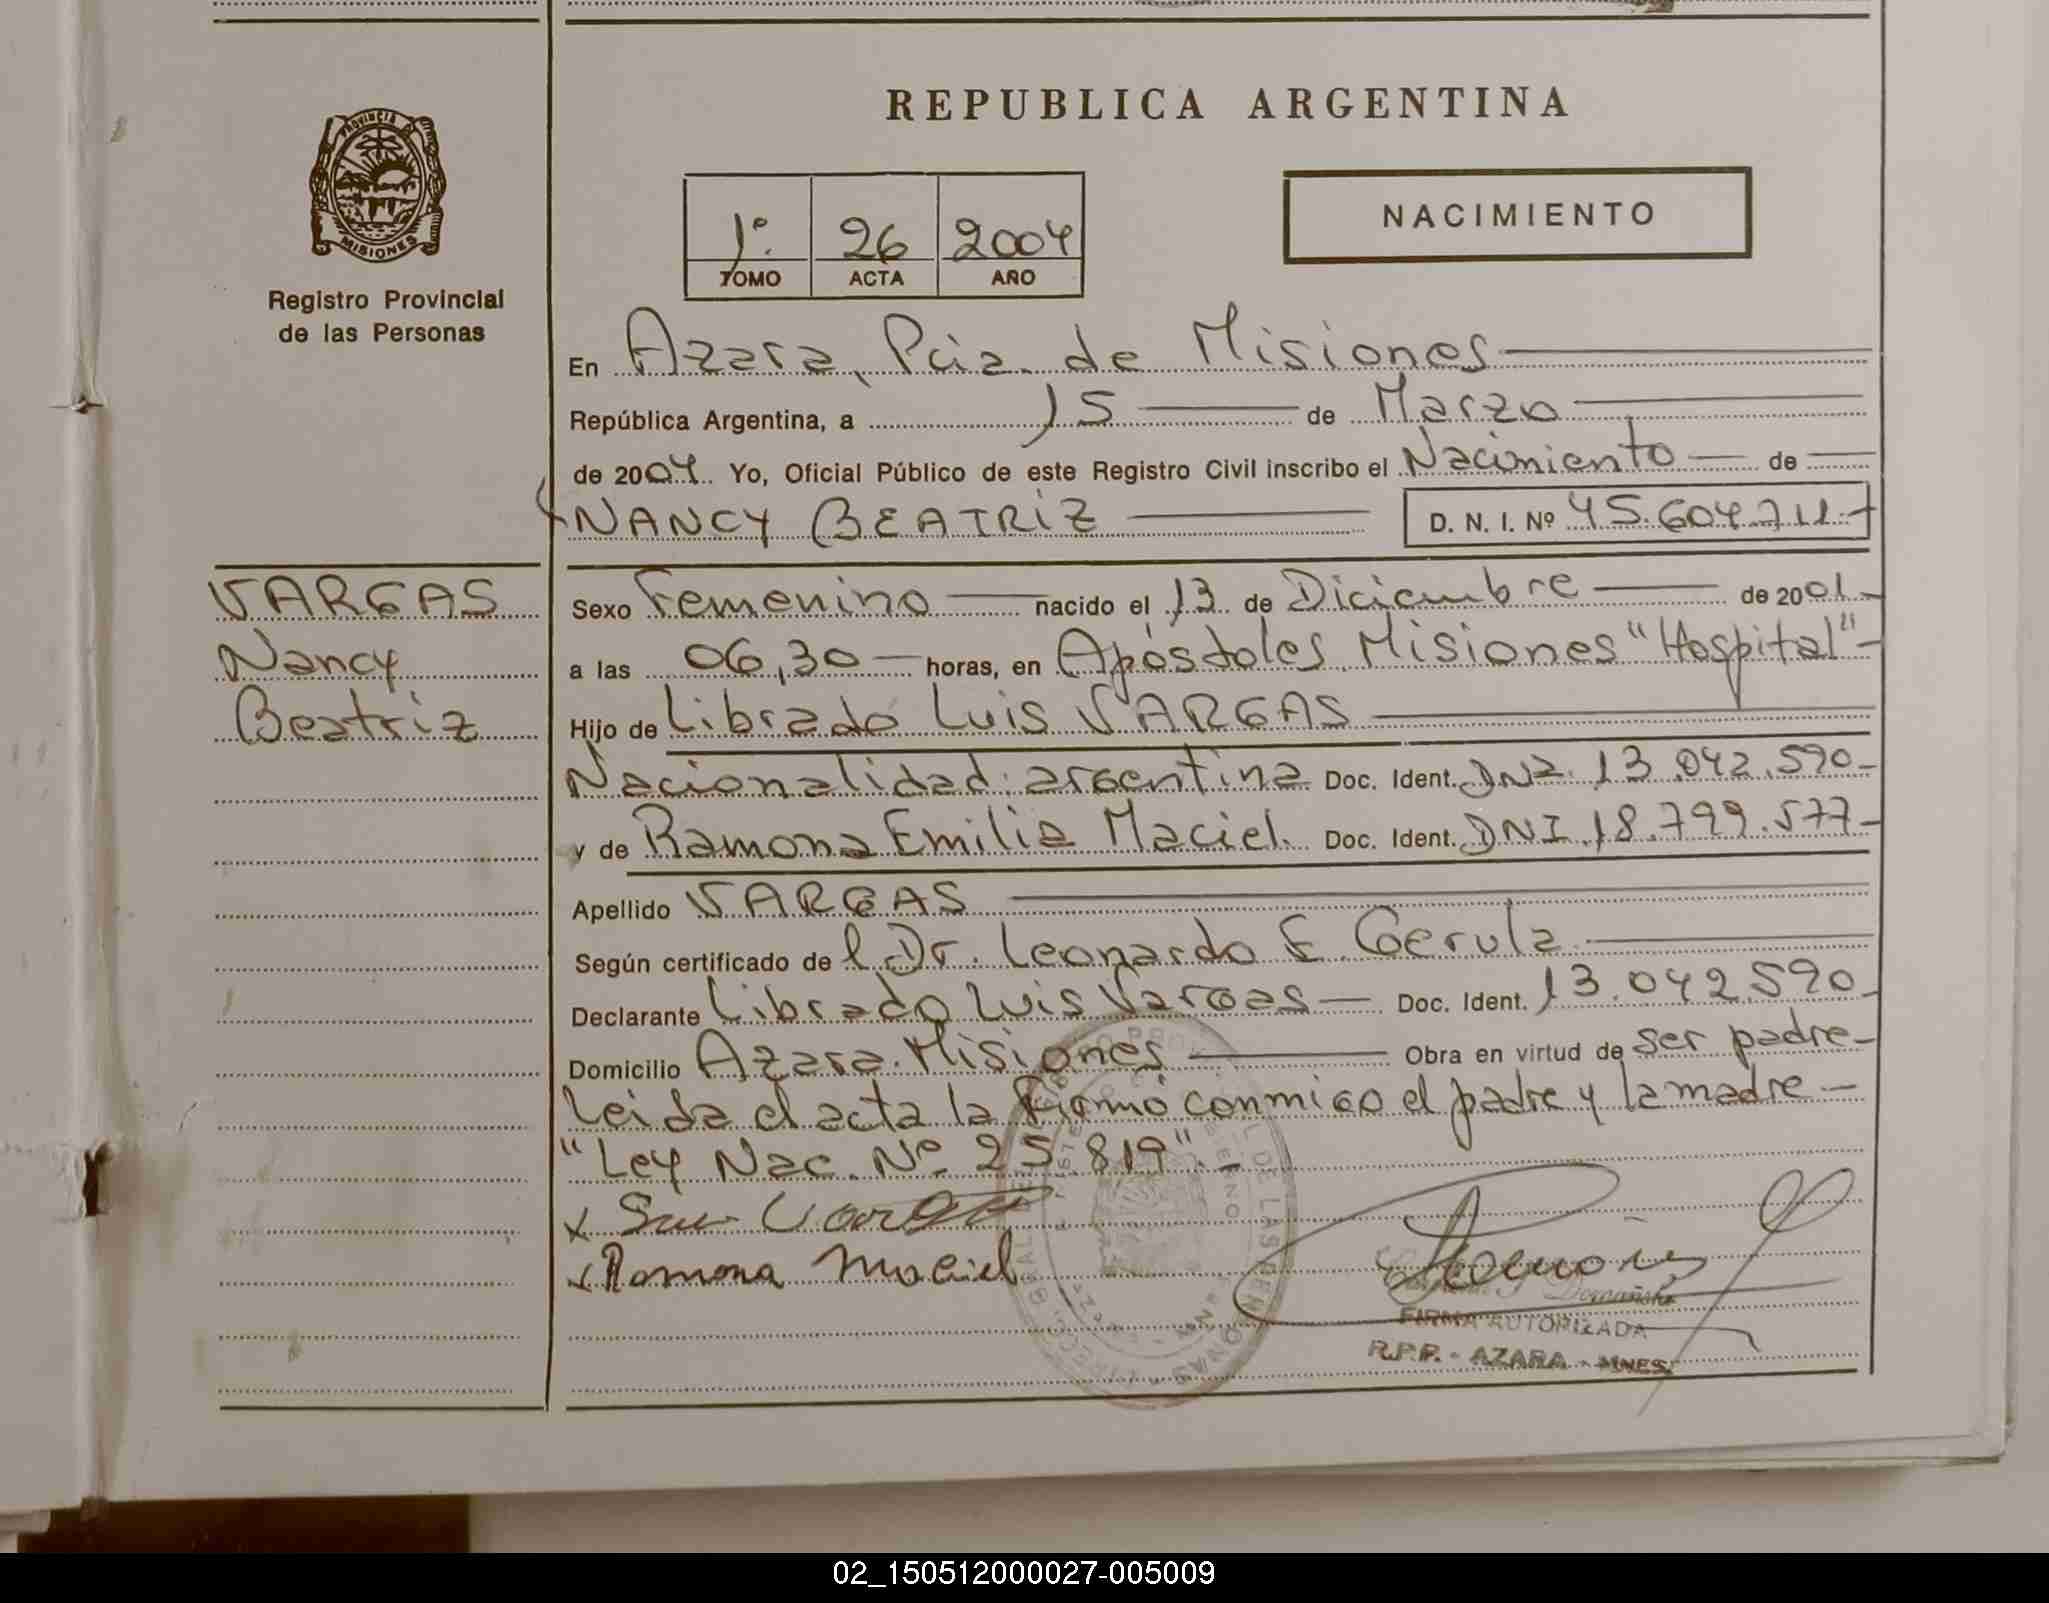 REPUBLICA ARGENTINA
PROVINCIA DE
MISIONES
Registro Provincial
de las Personas
NACIMIENTO
1º. 26 2004
TOMO ACTA AÑO
En Azara, Pcia. de Misiones
República Argentina, a 15 de Marzo
de 2004. Yo, Oficial Público de este Registro Civil inscribo el Nacimiento de
NANCY BEATRIZ D. N. I. Nº 45.604.711
VARGAS
Nancy
Beatriz
Sexo Femenino nacido el 13 de Diciembre de 2001
a las 06,30 horas, en Apóstoles Misiones "Hospital"
Hijo de Librado Luis VARGAS
Nacionalidad: argentina Doc. Ident. DNI. 13.042.590
y de Ramona Emilia Maciel. Doc. Ident. DNI 18.799.577
Apellido VARGAS
Según certificado de l Dr. Leonardo E. Gerula
Declarante Librado Luis Vargas Doc. Ident. 13.042.590
Domicilio Azara. Misiones Obra en virtud de ser padre
Leida el acta la firmó conmigo el padre y la madre
"Ley Nac. Nº 25.819".
x Vargas
x Ramona Maciel
FIRMA AUTORIZADA
R.P.P. - AZARA - MNES.
02_150512000027-005009